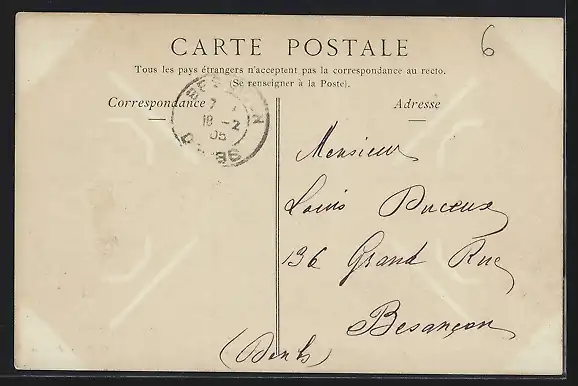 6
CARTE POSTALE
Tous les pays étrangers n'acceptent pas la correspondance au recto.
(Se renseigner à la Poste).
Correspondance
Adresse
BESANÇON
7
18 - 2
05
DOUBS
Monsieur
Louis
136 Grand Rue
Besançon
(Doubs)